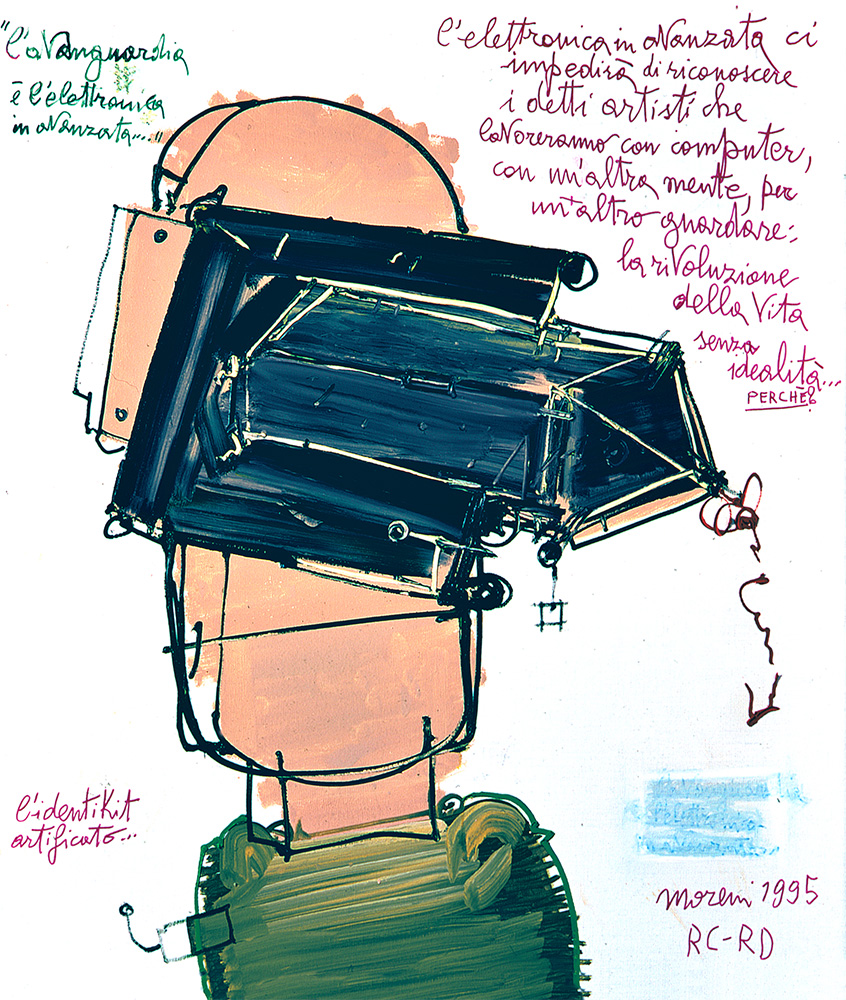 "l'avanguardia
è l'elettronica
in avanzata...."
l'elettronica in avanzata ci
impedirà di riconoscere
i detti artisti che
lavoreranno con computer,
con un'altra mente, per
un altro guardare:
la rivoluzione
della vita
senza
idealità...
PERCHÈ?
l'identikit
artificato...
moreni 1995
RC-RD